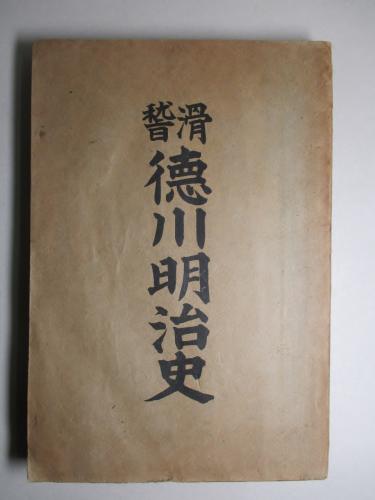 滑稽
徳川明治史